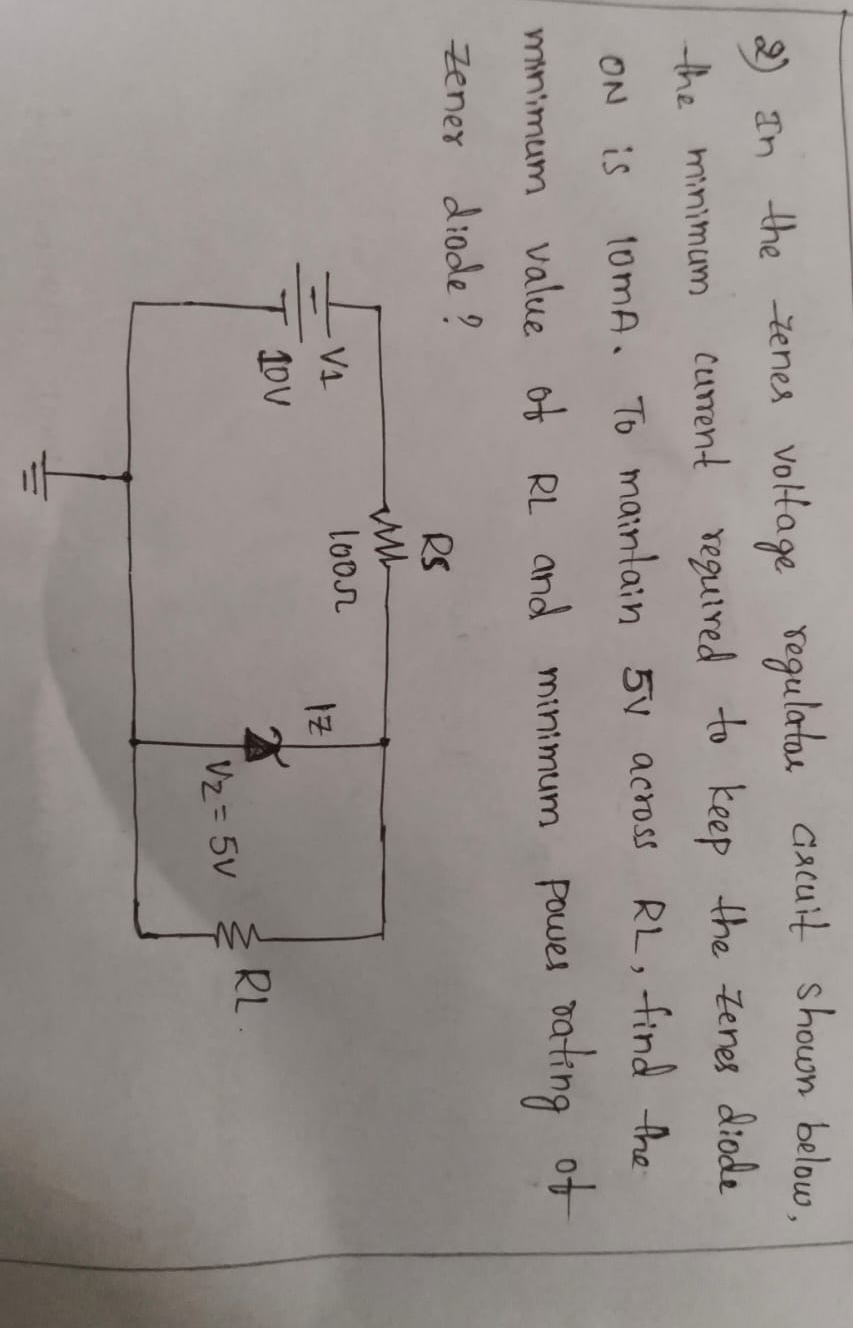 2) In the zener voltage regulator circuit shown below,
the minimum current required to keep the zener diode
ON is 10mA. To maintain 5V across RL, find the
minimum value of RL and minimum power rating of
zener diode?
RS
100Ω
V1
10V
IZ
VZ = 5V
RL.